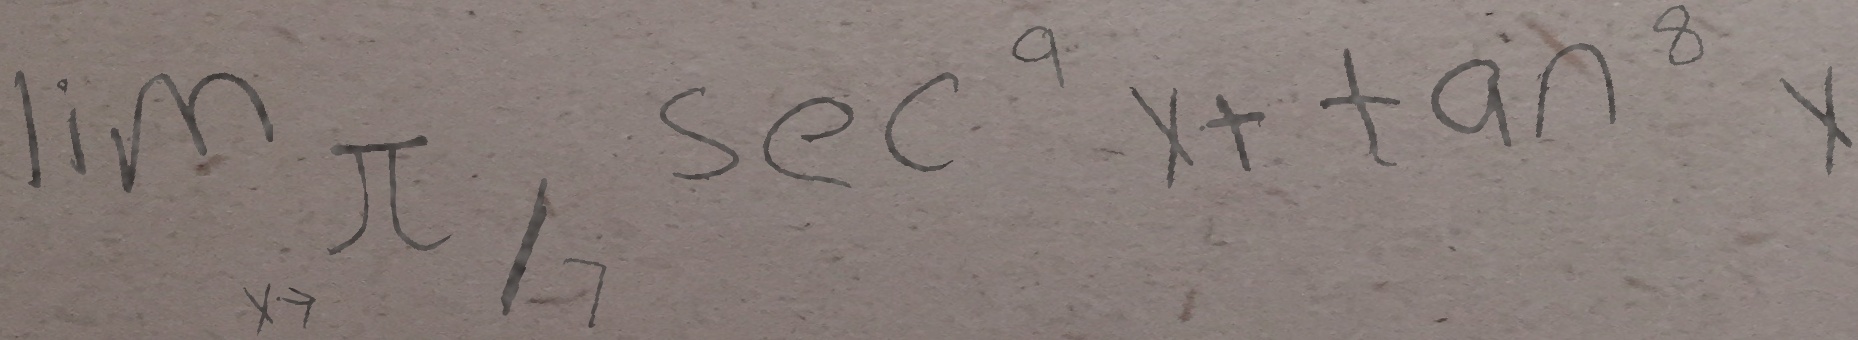 lim x→ π/7 sec⁹ x + tan⁸ x